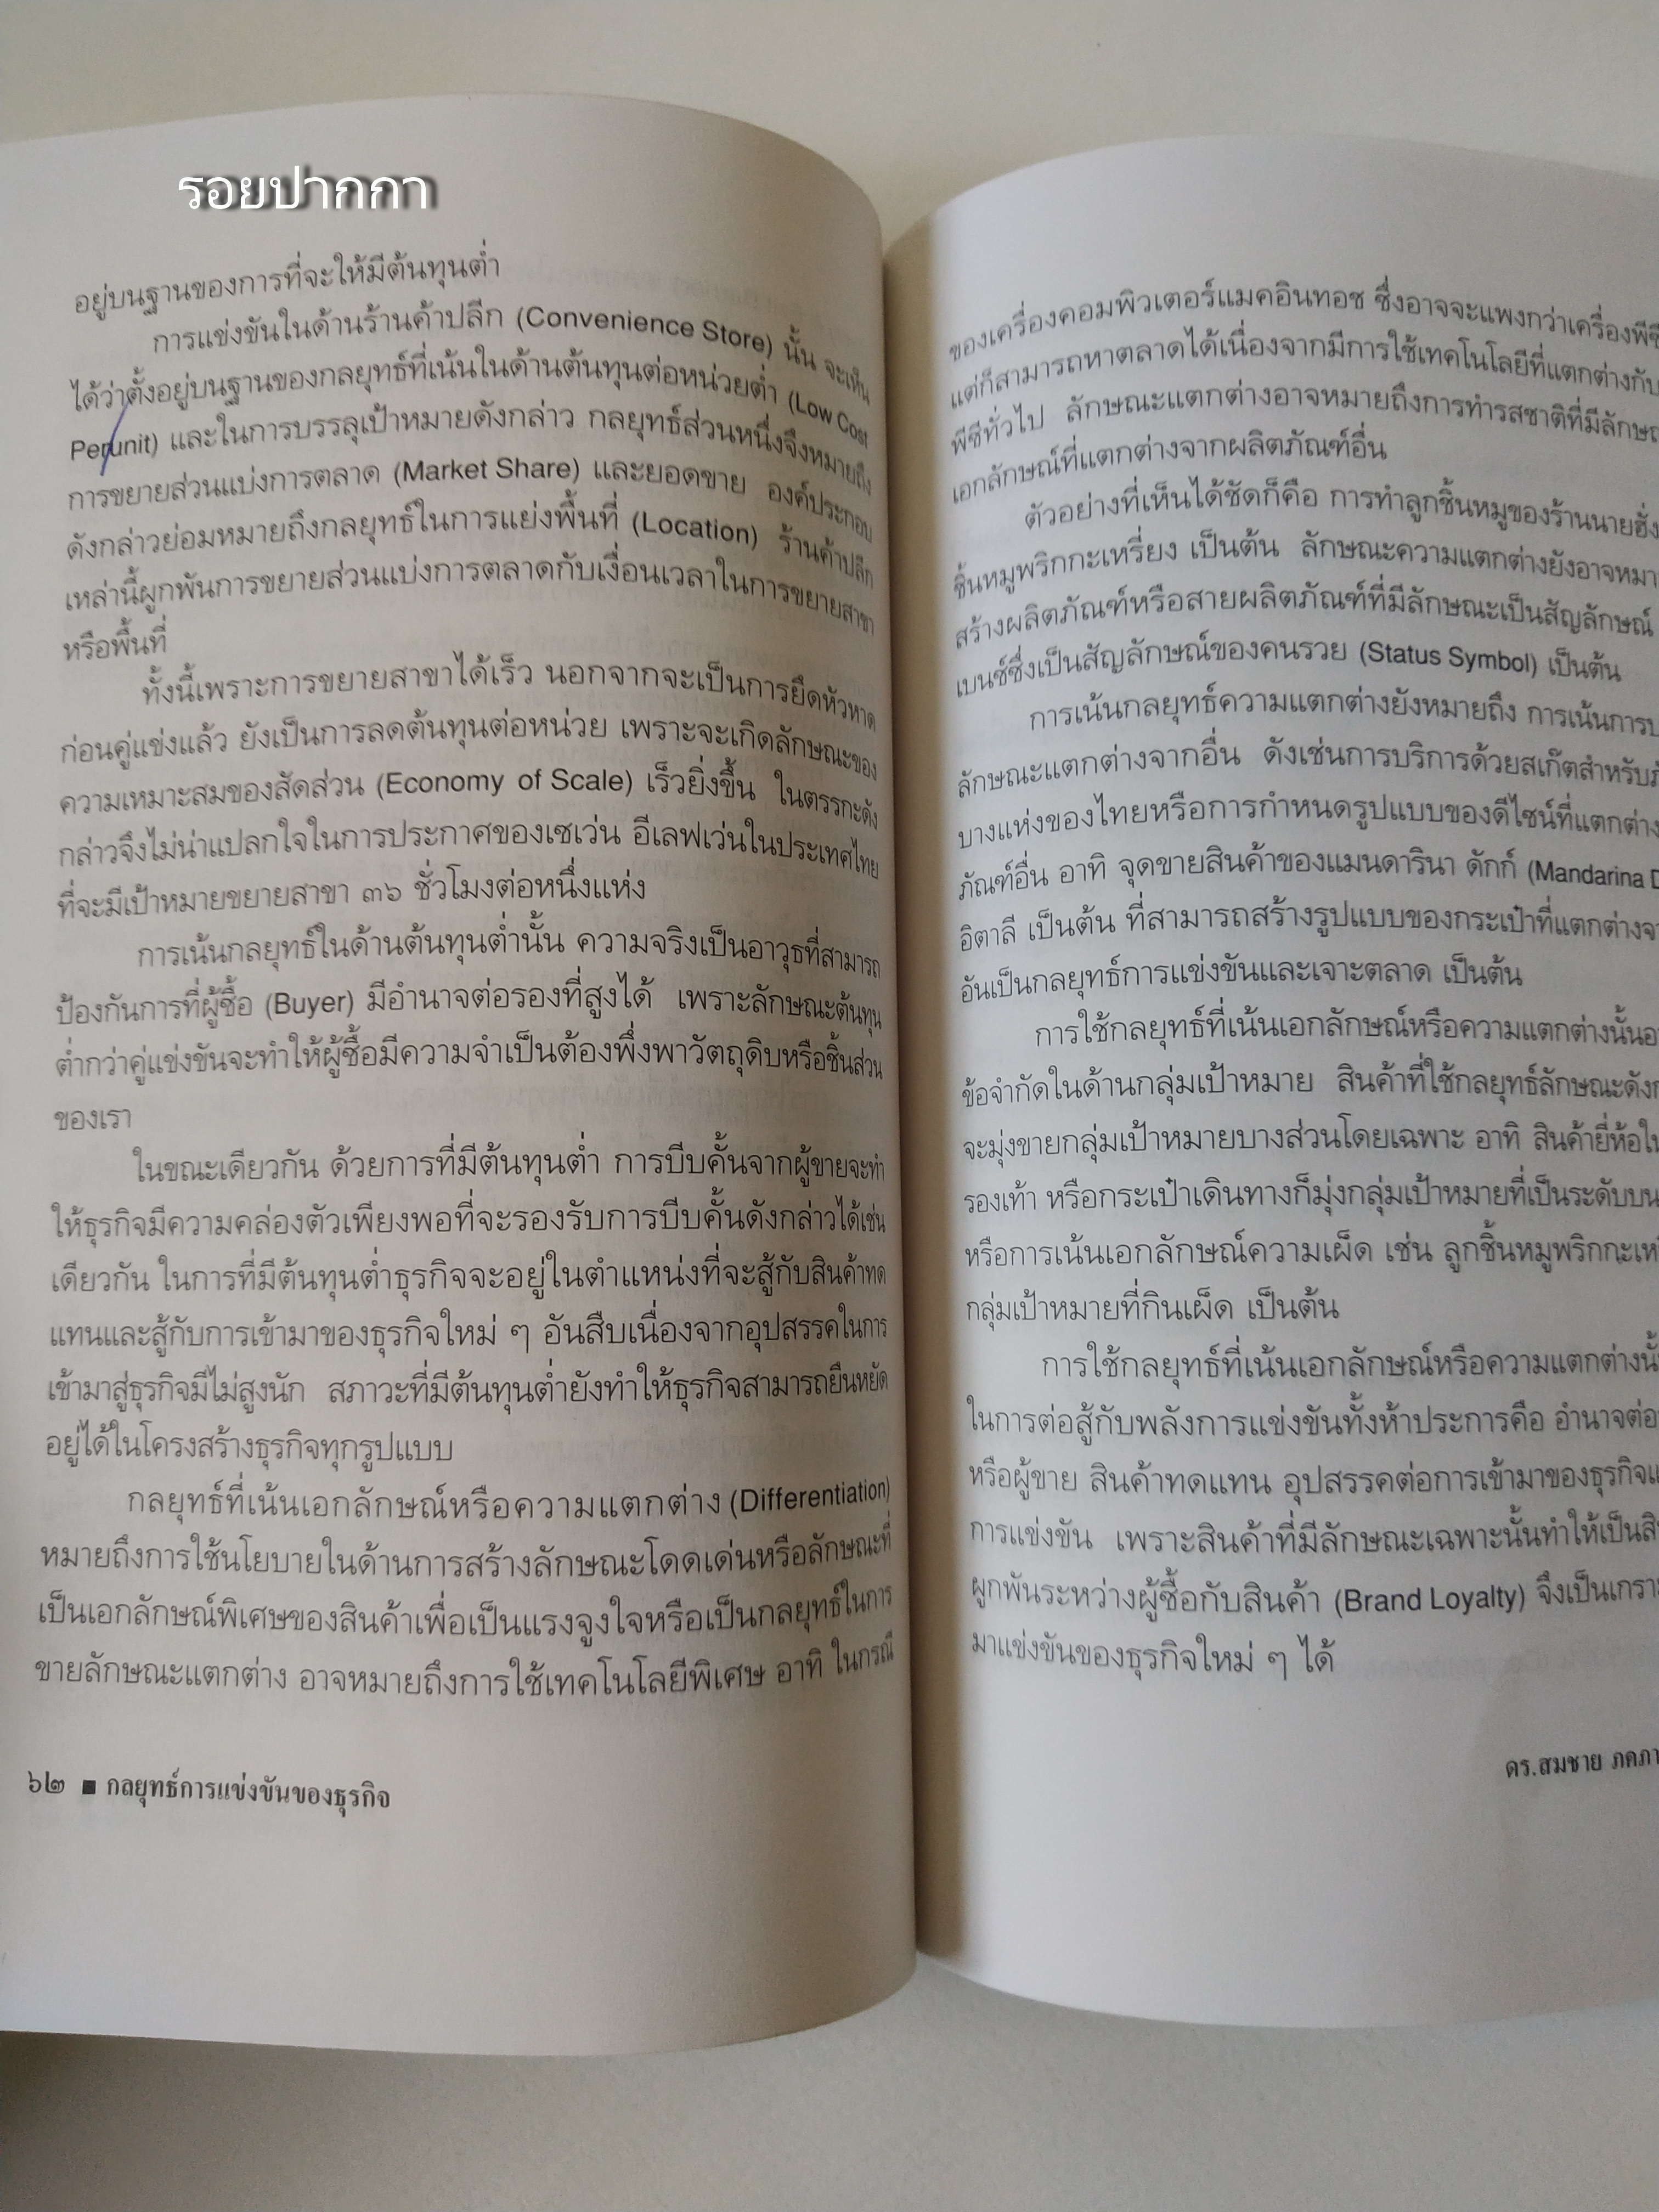 รอยปากกา
อยู่บนฐานของการที่จะให้มีต้นทุนต่ำ
การแข่งขันในด้านร้านค้าปลีก (Convenience Store) นั้น จะเห็น
ได้ว่าตั้งอยู่บนฐานของกลยุทธ์ที่เน้นในด้านต้นทุนต่อหน่วยต่ำ (Low Cost
Perunit) และในการบรรลุเป้าหมายดังกล่าว กลยุทธ์ส่วนหนึ่งจึงหมายถึง
การขยายส่วนแบ่งการตลาด (Market Share) และยอดขาย องค์ประกอบ
ดังกล่าวย่อมหมายถึงกลยุทธ์ในการแย่งพื้นที่ (Location) ร้านค้าปลีก
เหล่านี้ผูกพันการขยายส่วนแบ่งการตลาดกับเงื่อนเวลาในการขยายสาขา
หรือพื้นที่
ทั้งนี้เพราะการขยายสาขาได้เร็ว นอกจากจะเป็นการยึดหัวหาด
ก่อนคู่แข่งแล้ว ยังเป็นการลดต้นทุนต่อหน่วย เพราะจะเกิดลักษณะของ
ความเหมาะสมของสัดส่วน (Economy of Scale) เร็วยิ่งขึ้น ในตรรกะดัง
กล่าวจึงไม่น่าแปลกใจในการประกาศของเซเว่น อีเลฟเว่นในประเทศไทย
ที่จะมีเป้าหมายขยายสาขา ๓๖ ชั่วโมงต่อหนึ่งแห่ง
การเน้นกลยุทธ์ในด้านต้นทุนต่ำนั้น ความจริงเป็นอาวุธที่สามารถ
ป้องกันการที่ผู้ซื้อ (Buyer) มีอำนาจต่อรองที่สูงได้ เพราะลักษณะต้นทุน
ต่ำกว่าคู่แข่งขันจะทำให้ผู้ซื้อมีความจำเป็นต้องพึ่งพาวัตถุดิบหรือชิ้นส่วน
ของเรา
ในขณะเดียวกัน ด้วยการที่มีต้นทุนต่ำ การบีบคั้นจากผู้ขายจะทำ
ให้ธุรกิจมีความคล่องตัวเพียงพอที่จะรองรับการบีบคั้นดังกล่าวได้เช่น
เดียวกัน ในการที่มีต้นทุนต่ำธุรกิจจะอยู่ในตำแหน่งที่จะสู้กับสินค้าทด
แทนและสู้กับการเข้ามาของธุรกิจใหม่ ๆ อันสืบเนื่องจากอุปสรรคในการ
เข้ามาสู่ธุรกิจมีไม่สูงนัก สภาวะที่มีต้นทุนต่ำยังทำให้ธุรกิจสามารถยืนหยัด
อยู่ได้ในโครงสร้างธุรกิจทุกรูปแบบ
กลยุทธ์ที่เน้นเอกลักษณ์หรือความแตกต่าง (Differentiation)
หมายถึงการใช้นโยบายในด้านการสร้างลักษณะโดดเด่นหรือลักษณะที่
เป็นเอกลักษณ์พิเศษของสินค้าเพื่อเป็นแรงจูงใจหรือเป็นกลยุทธ์ในการ
ขายลักษณะแตกต่าง อาจหมายถึงการใช้เทคโนโลยีพิเศษ อาทิ ในกรณี
๖๒ ■ กลยุทธ์การแข่งขันของธุรกิจ
ของเครื่องคอมพิวเตอร์แมคอินทอช ซึ่งอาจจะแพงกว่าเครื่องพีซี
แต่ก็สามารถหาตลาดได้เนื่องจากมีการใช้เทคโนโลยีที่แตกต่างกับ
พีซีทั่วไป ลักษณะแตกต่างอาจหมายถึงการทำรสชาติที่มีลักษณ
เอกลักษณ์ที่แตกต่างจากผลิตภัณฑ์อื่น
ตัวอย่างที่เห็นได้ชัดก็คือ การทำลูกชิ้นหมูของร้านนายฮั่ง
ชิ้นหมูพริกกะเหรี่ยง เป็นต้น ลักษณะความแตกต่างยังอาจหมา
สร้างผลิตภัณฑ์หรือสายผลิตภัณฑ์ที่มีลักษณะเป็นสัญลักษณ์
เบนซ์ซึ่งเป็นสัญลักษณ์ของคนรวย (Status Symbol) เป็นต้น
การเน้นกลยุทธ์ความแตกต่างยังหมายถึง การเน้นการบ
ลักษณะแตกต่างจากอื่น ดังเช่นการบริการด้วยสเก๊ตสำหรับภั
บางแห่งของไทยหรือการกำหนดรูปแบบของดีไซน์ที่แตกต่าง
ภัณฑ์อื่น อาทิ จุดขายสินค้าของแมนดารินา ดักก์ (Mandarina D
อิตาลี เป็นต้น ที่สามารถสร้างรูปแบบของกระเป๋าที่แตกต่างจา
อันเป็นกลยุทธ์การแข่งขันและเจาะตลาด เป็นต้น
การใช้กลยุทธ์ที่เน้นเอกลักษณ์หรือความแตกต่างนั้นอา
ข้อจำกัดในด้านกลุ่มเป้าหมาย สินค้าที่ใช้กลยุทธ์ลักษณะดังก
จะมุ่งขายกลุ่มเป้าหมายบางส่วนโดยเฉพาะ อาทิ สินค้ายี่ห้อใน
รองเท้า หรือกระเป๋าเดินทางก็มุ่งกลุ่มเป้าหมายที่เป็นระดับบน
หรือการเน้นเอกลักษณ์ความเผ็ด เช่น ลูกชิ้นหมูพริกกะเห
กลุ่มเป้าหมายที่กินเผ็ด เป็นต้น
การใช้กลยุทธ์ที่เน้นเอกลักษณ์หรือความแตกต่างนั้
ในการต่อสู้กับพลังการแข่งขันทั้งห้าประการคือ อำนาจต่อ
หรือผู้ขาย สินค้าทดแทน อุปสรรคต่อการเข้ามาของธุรกิจแ
การแข่งขัน เพราะสินค้าที่มีลักษณะเฉพาะนั้นทำให้เป็นสิ
ผูกพันระหว่างผู้ซื้อกับสินค้า (Brand Loyalty) จึงเป็นเกรา
มาแข่งขันของธุรกิจใหม่ ๆ ได้
ดร.สมชาย ภคภา